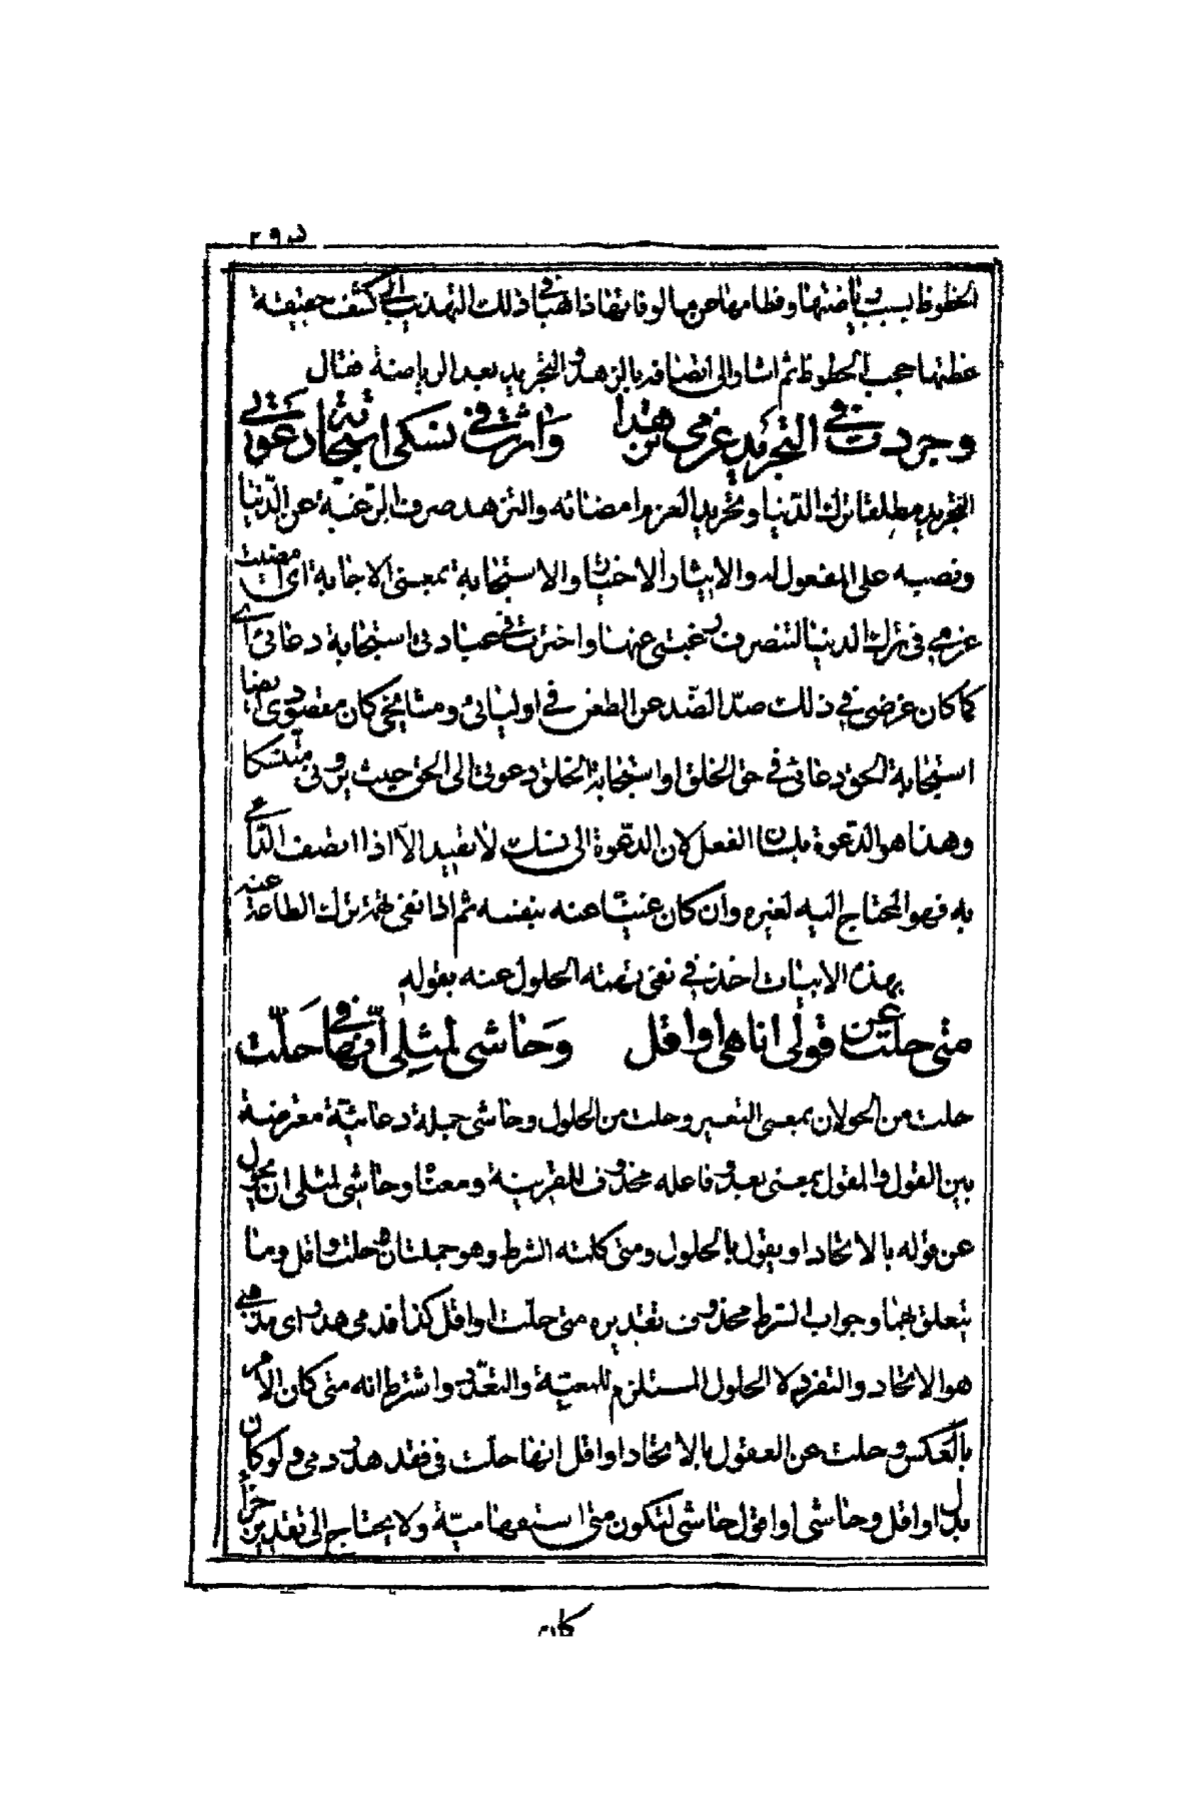 الحظوظ بسبب رياضتها وفطامها عن مالوفاتها ذاهبا في ذلك التهذيب الى كشف حقيقة
غطتها حجب الحظوظ ثم اشار الى اتصافه بالزهد والتجريد بعد الرياضة فقال
وجردت في التجريد عزمي تزهدا وآثرت في نسكي استجابة دعوتي
التجريد مطلقا ترك الدنيا وتجريد العزم امضائه والتزهد صرف الرغبة عن الدنيا
ونصبه على المفعول له والايثار الاختيار والاستجابة بمعنى الاجابة اي امضيت
عزمي في ترك الدنيا لتنصرف رغبتي عنها واخترت في عبادتي استجابة دعائي اي
كما كان غرضي في ذلك صد الضد عن الطعن في اوليائي ومشايخي كان مقصودي ايضا
استجابة الحق دعائي في حق الخلق او استجابة الخلق دعوتي الى الحق حيث يروني متنسكا
وهذا هو الدعوة بلسان الفعل لان الدعوة الى نسك لا تفيد الا اذا اتصف الداعي
به فهو المحتاج اليه لغيره وان كان غنيا عنه بنفسه ثم اذا نفى تهمة ترك الطاعة عنه
بهذه الابيات اخذ في نفي تهمة الحلول عنه بقوله
متى حلت عن قولي انا هي او اقل وحاشى لمثلي انها في حلت
حلت من الحولان بمعنى التغير وحلت من الحلول وحاشى جملة دعائية معترضة
بين القول والمقول بمعنى بعد وفاعله محذوف للقرينة ومعناه وحاشى لمثلي ان يحول
عن قوله بالاتحاد او يقول بالحلول ومتى كلمة الشرط وهو جملتان هما حلت واقل وما
يتعلق بهما وجواب الشرط محذوف تقديره متى حلت او اقل كذا قدمي هدر اي مذهبي
هو الاتحاد والتفرد لا الحلول المستلزم للمعية والتعدد واشترط انه متى كان الامر
بالعكس وحلت عن القول بالاتحاد او اقل انها حلت في فقد هدر دمي ولو كان
بدل او اقل وحاشى او اقول حاشى لتكون متى استفهامية ولا يحتاج الى تقدير جزأ
كان